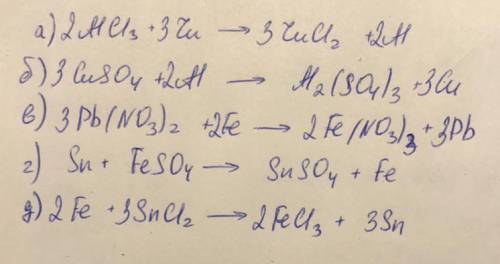 а) 2AlCl₃ + 3Zn → 3ZnCl₂ + 2Al
б) 3CuSO₄ + 2Al → Al₂(SO₄)₃ + 3Cu
в) 3Pb(NO₃)₂ + 2Fe → 2Fe(NO₃)₃ + 3Pb
г) Sn + FeSO₄ → SnSO₄ + Fe
д) 2Fe + 3SnCl₂ → 2FeCl₃ + 3Sn